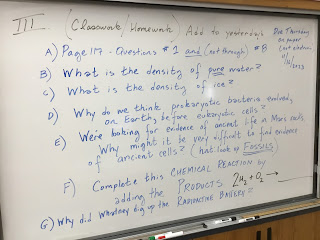 III. (Classwork/Homework) Add to yesterday's
Due Thursday
on paper
A) Page 117 - Questions #1 and (cut through) #8
B) What is the density of pure water?
C) What is the density of ice?
D) Why do we think prokaryotic bacteria evolved
on Earth before eukaryotic cells?
E) We're looking for evidence of ancient life in Mars rocks.
Why might it be very difficult to find evidence
of ancient cells? (that look like FOSSILS)
F) Complete this CHEMICAL REACTION by
adding the PRODUCTS 2H₂ + O₂ →
G) Why did Whatney dig up the RADIOACTIVE BATTERY?